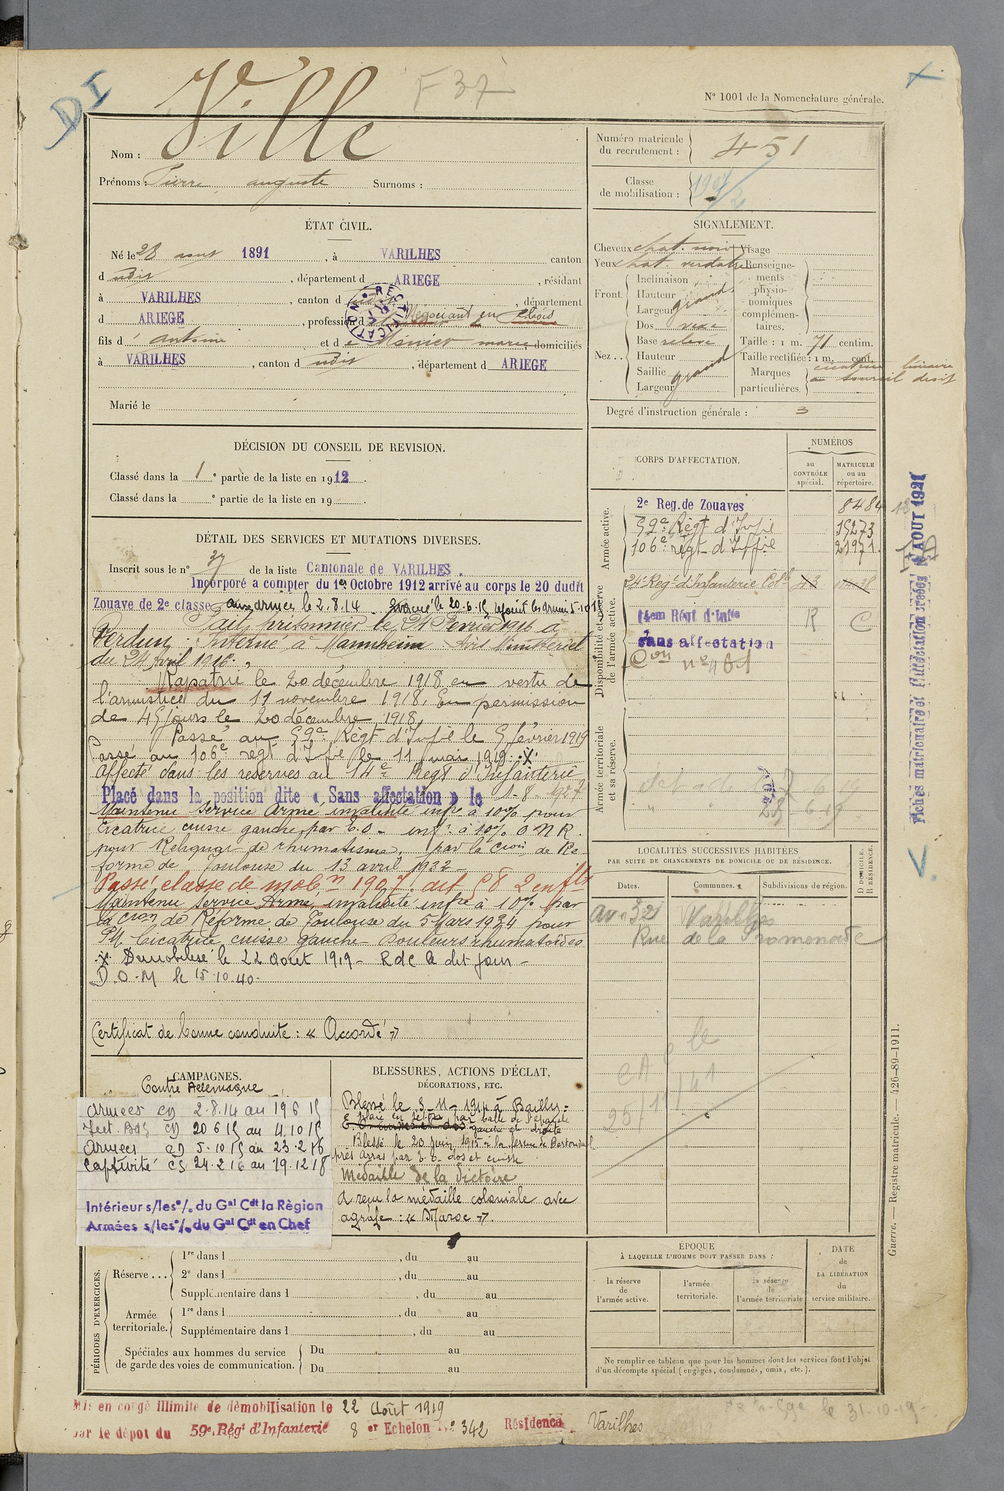 DI
F 37
N° 1001 de la Nomenclature générale.
Nom : Ville
Prénoms : Pierre auguste Surnoms :
Numéro matricule du recrutement : 451
Classe de mobilisation :
ÉTAT CIVIL.
Né le 28 aout 1891, à VARILHES canton
d udit, département d ARIEGE, résidant
à VARILHES, canton d, département
d ARIEGE, profession d Négociant en
RECTIFICATION
fils d' Antoine et d e marie domiciliés
à VARILHES, canton d udit, département d ARIEGE
Marié le
SIGNALEMENT.
Cheveux chat. noir Visage
Yeux chat. verdatre Renseignements physionomiques complémentaires.
Front. Inclinaison
Hauteur grand
Largeur
Nez. Dos vexe
Base relevé
Hauteur grand
Saillie
Largeur
Taille : 1 m. 71 centim.
Taille rectifiée : 1 m. cent.
Marques particulières. cicatrice linéaire au sourcil droit
Degré d'instruction générale : 3
DÉCISION DU CONSEIL DE REVISION.
Classé dans la 1e partie de la liste en 1912.
Classé dans la e partie de la liste en 19
DÉTAIL DES SERVICES ET MUTATIONS DIVERSES.
Inscrit sous le n° 37 de la liste Cantonale de VARILHES.
Incorporé a compter du 1er Octobre 1912 arrivé au corps le 20 dudit
Zouave de 2e classe aux armées le 2.8.14 évacué le 20.6.15
Fait prisonnier le 24 Février 1916 à
Verdun. Interné à Mannheim avis Ministériel
du 24 avril 1916.
Rapatrié le 20 décembre 1918 en vertu de
l'armistice du 11 novembre 1918. En permission
de 45 jours le 20 décembre 1918,
Passé au 59e Régt d'Infie le 5 février 1919
Passé au 106e regt d'Infie le 11 mai 1919 .X.
Affecté dans les réserves au 14e Régt d'Infanterie
Placé dans la position dite « Sans affectation » le 1-8-1927
Maintenu service armé invalidité infre à 10% pour
Cicatrice cuisse gauche par E.O. - infre à 10% O N R.
pour Reliquat de rhumatisme, par la Cion de Ré
forme de Toulouse du 13 avril 1932 -
Passé classe de mobon 1907. art 58 2 enfts
Maintenu service Armé, invalidité infre à 10% par
la Cion de Réforme de Toulouse du 5 Mars 1934 pour
Cicatrice cuisse gauche - Douleurs rhumatoïdes
.X. Démobilisé le 22 Aout 1919 - RdC le dit jour -
D.O.M le 15.10.40.
Certificat de bonne conduite : « Accordé »
CORPS D'AFFECTATION.
NUMÉROS
au CONTRÔLE spécial.
MATRICULE ou au répertoire.
Armée active.
2e Reg. de Zouaves 8484
59e Régt d'Infie 15273
106e régt d'Inffie 21971
Disponibilité et réserve de l'armée active.
24e Regt d'Infanterie Colle
14em Régt d'Infie R C
Sans affectation
Armée territoriale et sa réserve.
Fiches matriculaire et d'affectation créées AOUT 1921
LOCALITÉS SUCCESSIVES HABITÉES
PAR SUITE DE CHANGEMENTS DE DOMICILE OU DE RÉSIDENCE.
Dates. Communes. Subdivisions de région. D DOMICILE. R RÉSIDENCE.
Av. 32 Varilhes
Rue de la Promenade
CA le
25/1/41
CAMPAGNES.
Contre Allemagne
Armées CD 2.8.14 au 19 6 15
Int. Bos CD 20 6 15 au 4.10.15
Armées CD 5.10.15 au 23.2.16
Captivité CS 24.2.16 au 19.12.18
Intérieur s/les o/. du Gal Cdt la Région
Armées s/les o/. du Gal Cdt en Chef
BLESSURES, ACTIONS D'ÉCLAT,
DÉCORATIONS, ETC.
Blessé le 3-11-1914 à Bailly :
Blessé le 20 juin 1915 à la ferme de Berthonval
près Arras par E.O. dos et cuisse
Médaille de la Victoire
A reçu la médaille coloniale avec
agrafe : « Maroc ».
PÉRIODES D'EXERCICES.
Réserve... 1re dans l , du au
2e dans l , du au
Supplémentaire dans l , du au
Armée territoriale. 1re dans l , du au
Supplémentaire dans l , du au
Spéciales aux hommes du service de garde des voies de communication. Du au
Du au
ÉPOQUE
À LAQUELLE L'HOMME DOIT PASSER DANS :
la réserve de l'armée active.
l'armée territoriale.
la réserve de l'armée territoriale
DATE de LA LIBÉRATION du service militaire.
Ne remplir ce tableau que pour les hommes dont les services font l'objet
d'un décompte spécial (engagés, condamnés, omis, etc.).
Guerre. — Registre matricule. — 426-89-1911.
Mis en congé illimité de démobilisation le 22 Août 1919
par le dépot du 59e Régt d'Infanterie 8 er Echelon N° 342 Résidence Varilhes
le 31-10-19